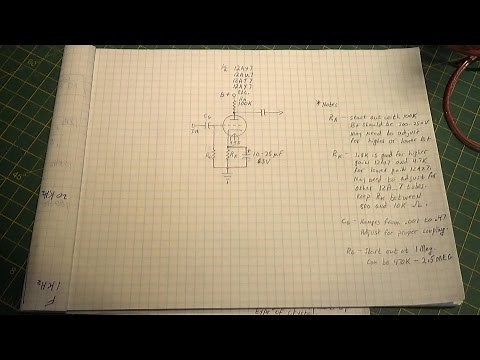 ½ 12AX7
12AU7
12AT7
12AY7
etc.
B+
RA
100K
CG
RG
RK
10-25µF
25V
* Notes
RA - start out with 100K
B+ should be 200-250V
may need to adjust
for higher or lower B+.
RK - 1.5K is good for higher
gain 12AX7 and 4.7K
for lower gain 12AX7.
May need to adjust for
other 12A_7 tubes
keep RK between
800 and 10K Ω.
CG - Ranges from .001 to .47
Adjust for proper coupling.
RG - Start out at 1 Meg.
Can be 470K - 2.5 MEG
20 KHz
1 KHz